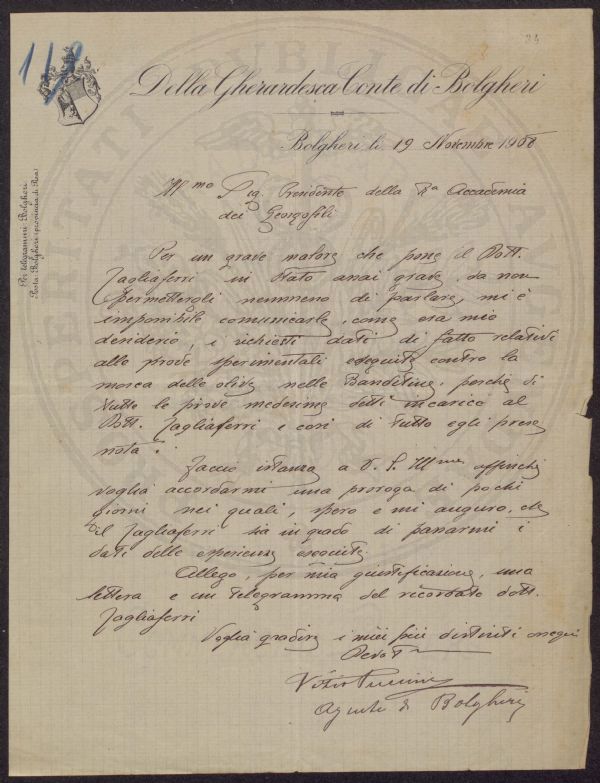 118
34
Della Gherardesca Conte di Bolgheri
Per telegrammi: Bolgheri
Posta: Bolgheri (provincia di Pisa)
Bolgheri li 19 Novembre 1908
Ill.mo Sig. Presidente della Ra Accademia
dei Georgofili
Per un grave malore che pone il Dott.
Tagliaferri in stato assai grave, da non
permettergli nemmeno di parlare, mi è
impossibile comunicarle, come era mio
desiderio, i richiesti dati di fatto relativi
alle prove sperimentali eseguite contro la
mosca delle olive nelle Bandite, perchè di
tutte le prove medesime detti incarico al
Dott. Tagliaferri e così di tutto egli prese
nota.
Faccio istanza a V. S. Ill.ma affinchè
voglia accordarmi una proroga di pochi
giorni nei quali, spero e mi auguro, che
il Tagliaferri sia in grado di passarmi i
dati delle esperienze eseguite.
Allego, per mia giustificazione, una
lettera e un telegramma del ricordato dott.
Tagliaferri
Voglia gradire i miei più distinti ossequi
Devot
Agente di Bolgheri